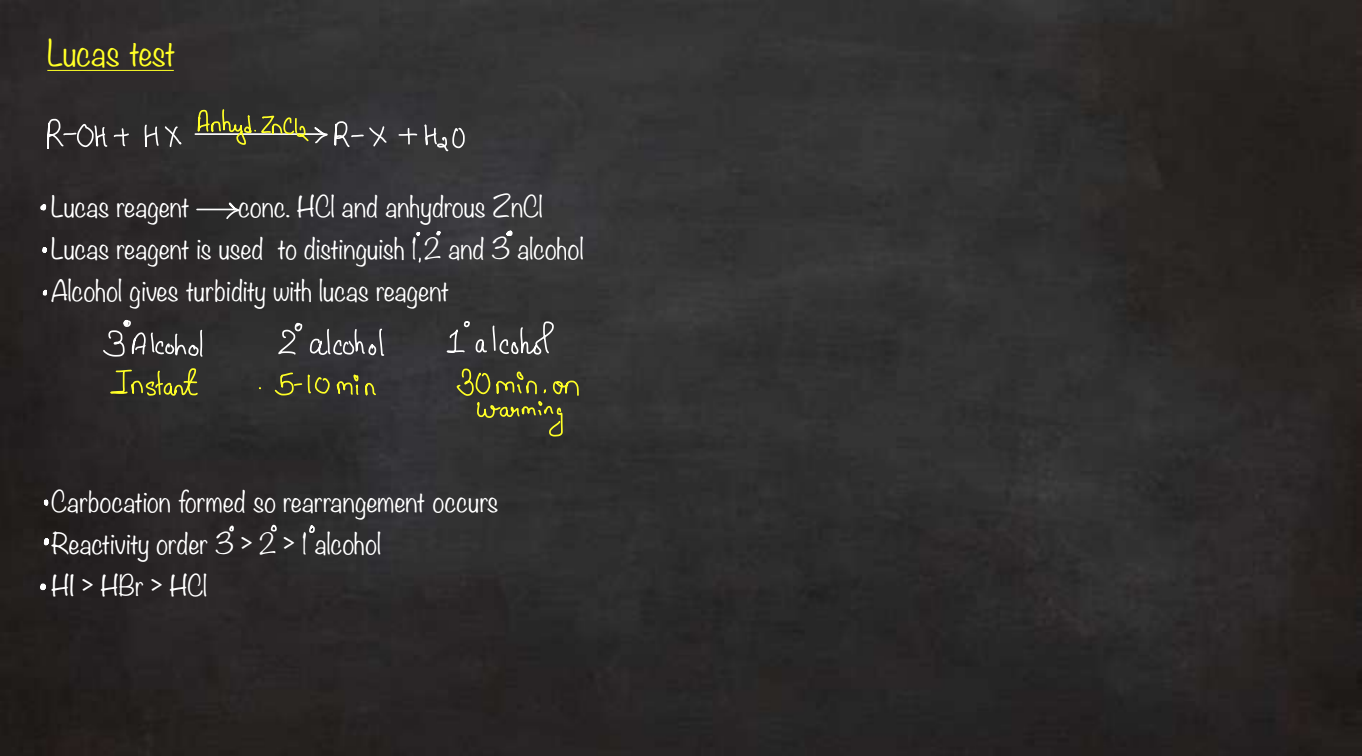 Lucas test
R-OH + HX Anhyd. ZnCl₂ → R-X + H₂O
•Lucas reagent →conc. HCl and anhydrous ZnCl
•Lucas reagent is used to distinguish 1°,2° and 3° alcohol
•Alcohol gives turbidity with lucas reagent
3° Alcohol 2° alcohol 1° alcohol
Instant . 5-10 min 30 min. on
warming
•Carbocation formed so rearrangement occurs
•Reactivity order 3° > 2° > 1° alcohol
•HI > HBr > HCl